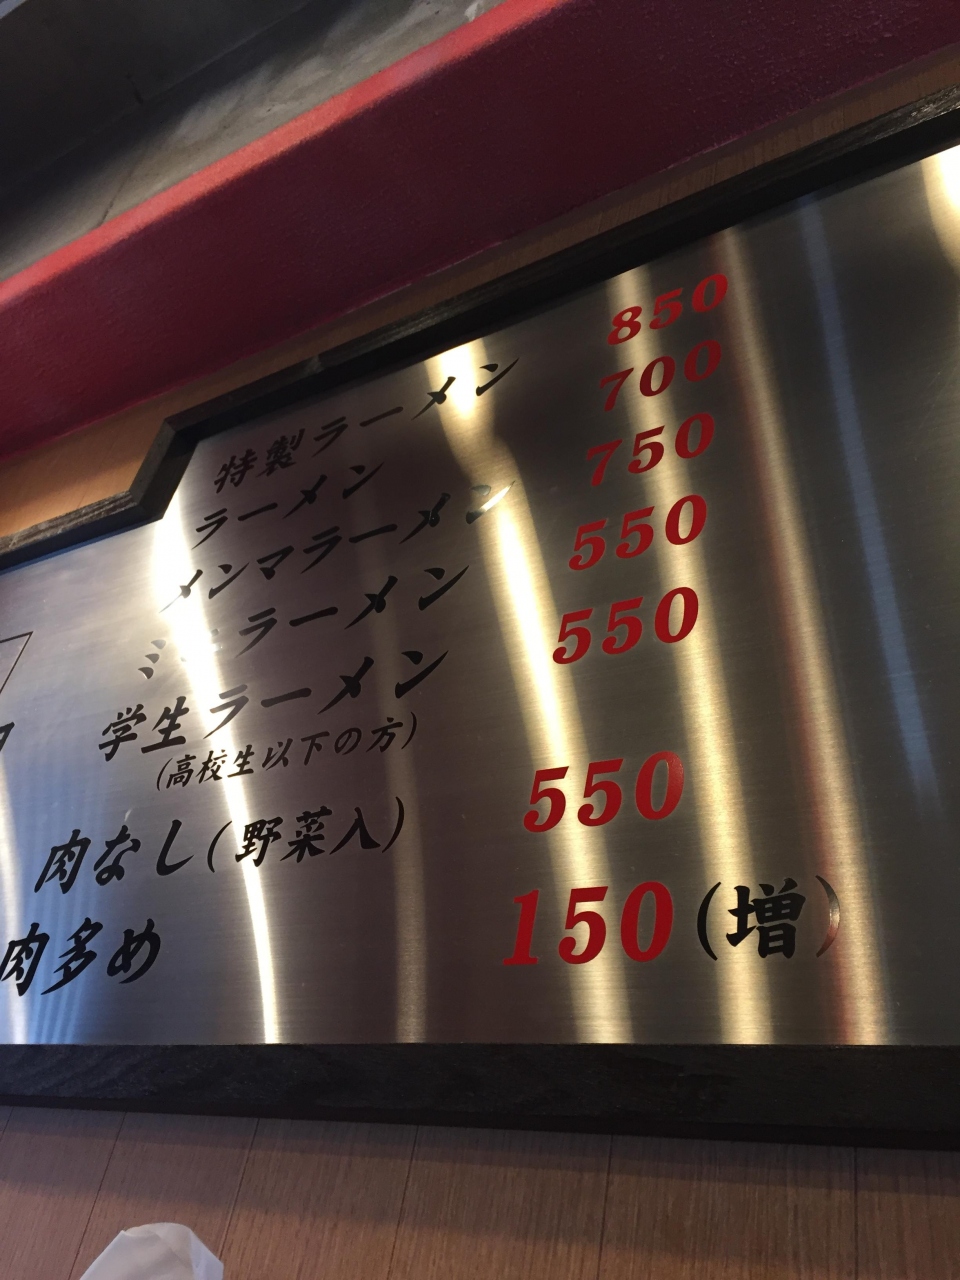 特製ラーメン 850
ラーメン 700
メンマラーメン 750
ミニラーメン 550
学生ラーメン 550
(高校生以下の方)
肉なし(野菜入) 550
肉多め 150(増)